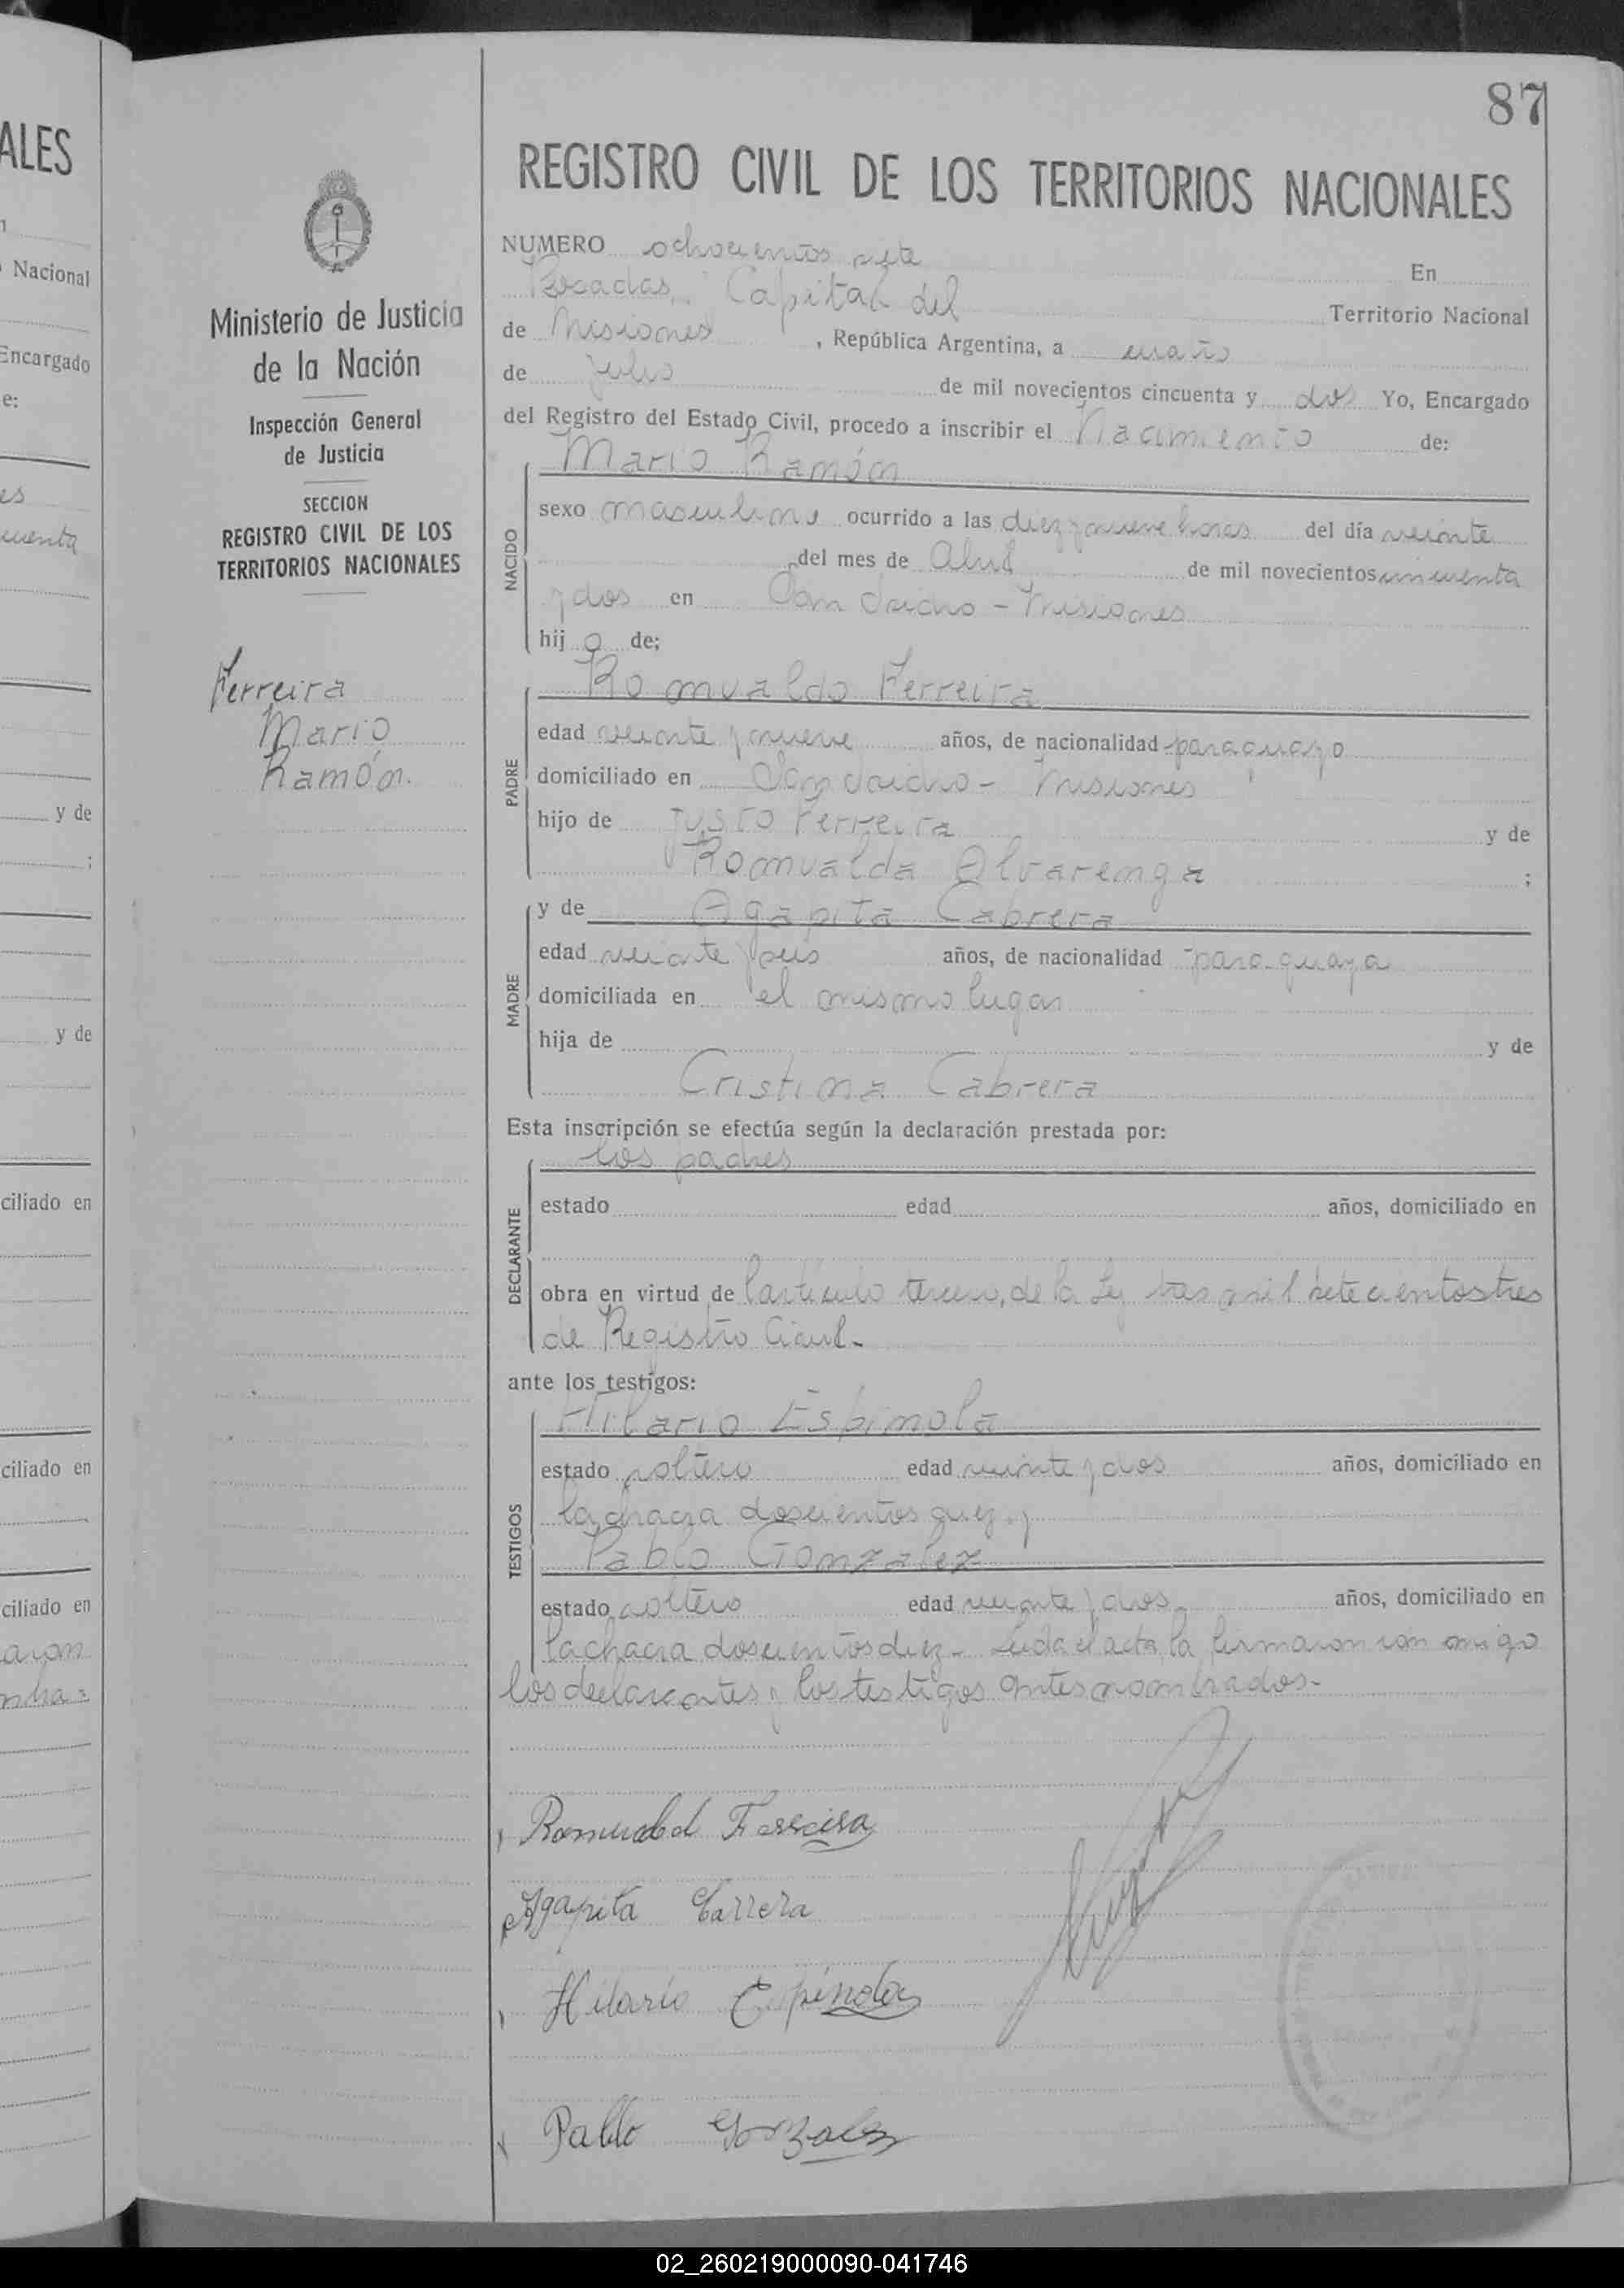 87
ALES
Nacional
Encargado
e:
es
cuenta
y de
;
y de
ciliado en
ciliado en
ciliado en
aron
Ministerio de Justicia
de la Nación
Inspección General
de Justicia
SECCION
REGISTRO CIVIL DE LOS
TERRITORIOS NACIONALES
Ferreira
Mario
Ramón.
REGISTRO CIVIL DE LOS TERRITORIOS NACIONALES
NUMERO ochocientos siete En
Posadas, Capital del Territorio Nacional
de Misiones, República Argentina, a cuatro
de Julio de mil novecientos cincuenta y dos Yo, Encargado
del Registro del Estado Civil, procedo a inscribir el Nacimiento de:
NACIDO
Mario Ramón
sexo masculino ocurrido a las diez y nueve horas del día veinte
del mes de Abril de mil novecientos cincuenta
y dos en San Isidro - Misiones
hijo de;
PADRE
Romualdo Ferreira
edad veinte y nueve años, de nacionalidad paraguayo
domiciliado en San Isidro - Misiones
hijo de Justo Ferreira y de
Romualda Alvarenga ;
MADRE
y de Agapita Cabrera
edad veinte y seis años, de nacionalidad paraguaya
domiciliada en el mismo lugar
hija de y de
Cristina Cabrera
Esta inscripción se efectúa según la declaración prestada por:
DECLARANTE
los padres
estado edad años, domiciliado en
obra en virtud de l artículo tercero, de la Ley tres mil setecientos tres
de Registro Civil-
ante los testigos:
TESTIGOS
Hilario Espinola
estado soltero edad veinte y dos años, domiciliado en
la chacra doscientos diez. y
Pablo Gonzalez
estado soltero edad veinte y dos años, domiciliado en
la chacra doscientos diez- Leida el acta la firmaron con migo
los declarantes y los testigos antes nombrados-
Romualdo Ferreira
Agapita Carrera
Hilario Espinola
Pablo Gonzalez
02_260219000090-041746